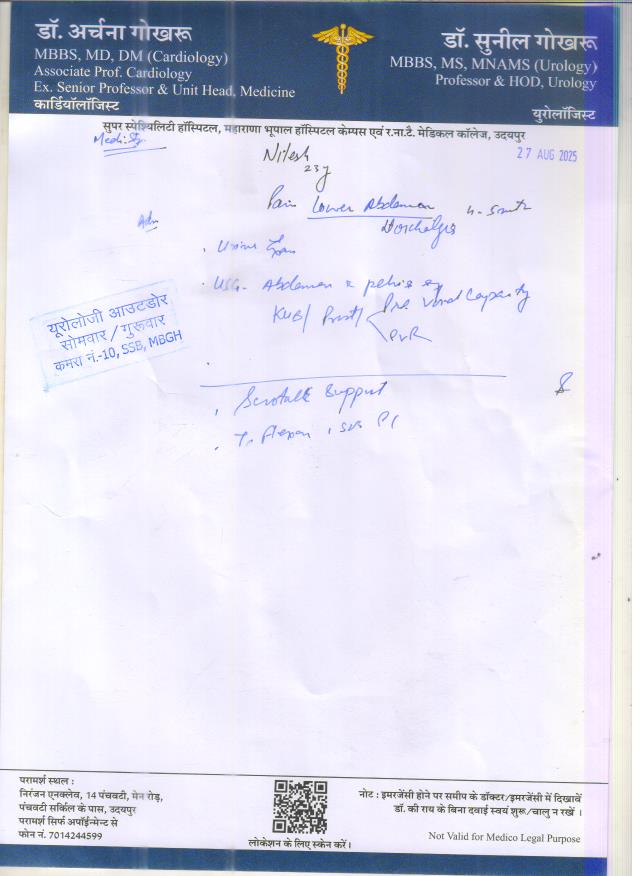 डॉ. अर्चना गोखरू
MBBS, MD, DM (Cardiology)
Associate Prof. Cardiology
Ex. Senior Professor & Unit Head, Medicine
कार्डियॉलॉजिस्ट
डॉ. सुनील गोखरू
MBBS, MS, MNAMS (Urology)
Professor & HOD, Urology
युरोलॉजिस्ट
सुपर स्पेश्यिलिटी हॉस्पिटल, महाराणा भूपाल हॉस्पिटल केम्पस एवं र.ना.टै. मेडिकल कॉलेज, उदयपुर
Nitesh
27 AUG 2025
23y
Pain Lower Abdomen
Adv
. Urine
. USG- Abdomen & pelvis
KUB/ Prost/ Pre Void Capacity
PVR
यूरोलोजी आउटडोर
सोमवार / गुरूवार
कमरा नं.-10, SSB, MBGH
. Scrotal Support
. T.
परामर्श स्थल :
निरंजन एनक्लेव, 14 पंचवटी, मेन रोड़,
पंचवटी सर्किल के पास, उदयपुर
परामर्श सिर्फ अपॉईन्मेन्ट से
फोन नं. 7014244599
लोकेशन के लिए स्केन करें।
नोट : इमरजेंसी होने पर समीप के डॉक्टर/इमरजेंसी में दिखावें
डॉ. की राय के बिना दवाई स्वयं शुरू/चालु न रखें ।
Not Valid for Medico Legal Purpose